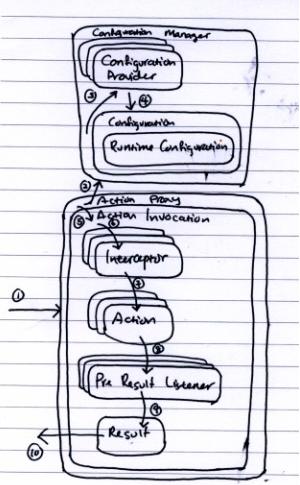 Configuration Manager
Configuration
Provider
③
④
Configuration
Runtime Configuration
②
Action Proxy
⑤
Action Invocation
⑥
Interceptor
①
⑦
Action
⑧
Pre Result Listener
⑨
Result
⑩